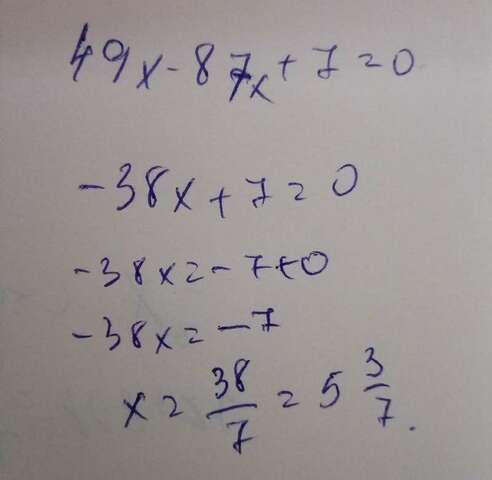 49x - 87x + 7 = 0
-38x + 7 = 0
-38x = -7 + 0
-38x = -7
x = 38/7 = 5 3/7.